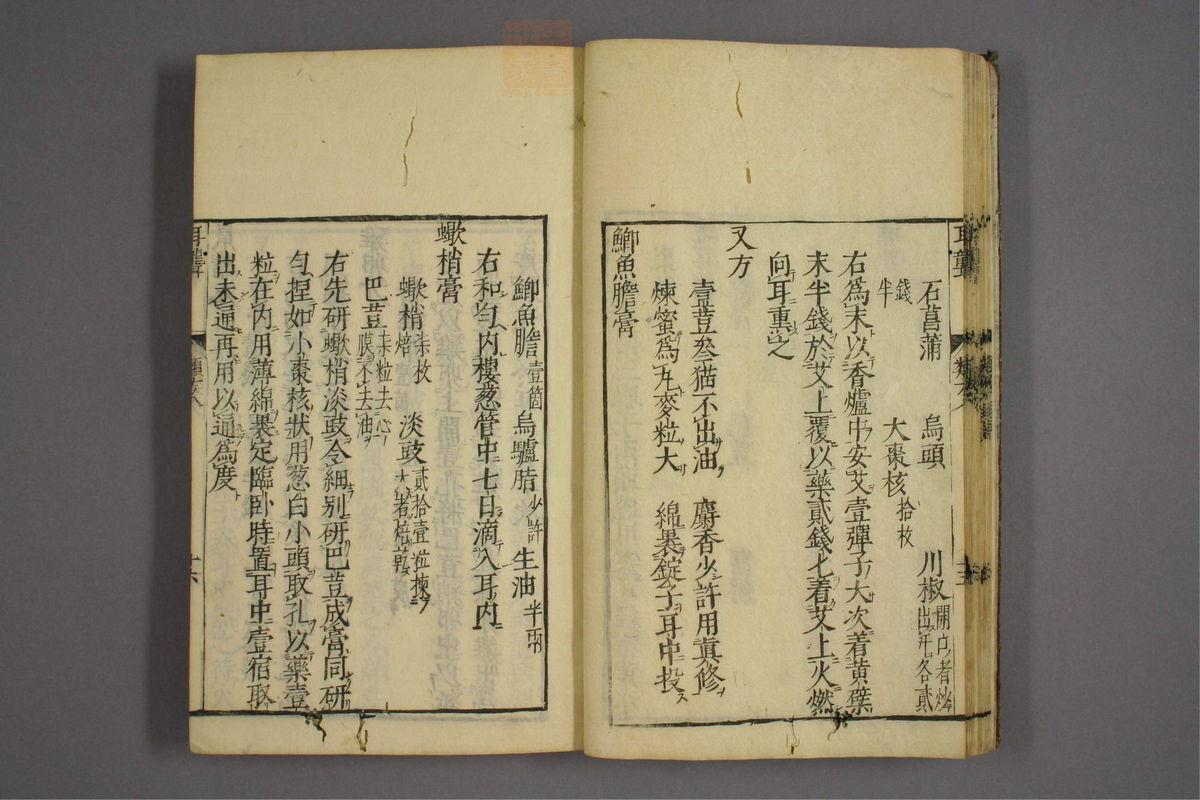 石菖蒲 烏頭 川椒開口者炒出汗各貳
錢半 大棗核拾枚
右為末以香爐中安艾壹彈子大次着黃蘗
末半錢於艾上覆以藥貳錢匕着艾上火燃
向耳熏之
又方
壹荳叁猫不出油 麝香少許用眞修
煉蜜為丸麥粒大 綿裹錠子耳中投
鯽魚膽膏
鯽魚膽壹箇 烏驢脂少許 生油半兩
右和勻內樓葱管中七日滴入耳內
蠍梢膏
蠍梢柒枚焙 淡豉貳拾壹粒揀大者焙乾
巴荳柒粒去心膜不去油
右先研蠍梢淡豉令細别研巴荳成膏同研
勻捏如小棗核狀用葱白小頭取孔以藥壹
粒在內用薄綿裹定臨卧時置耳中壹宿取
出未通再用以通為度
耳聾